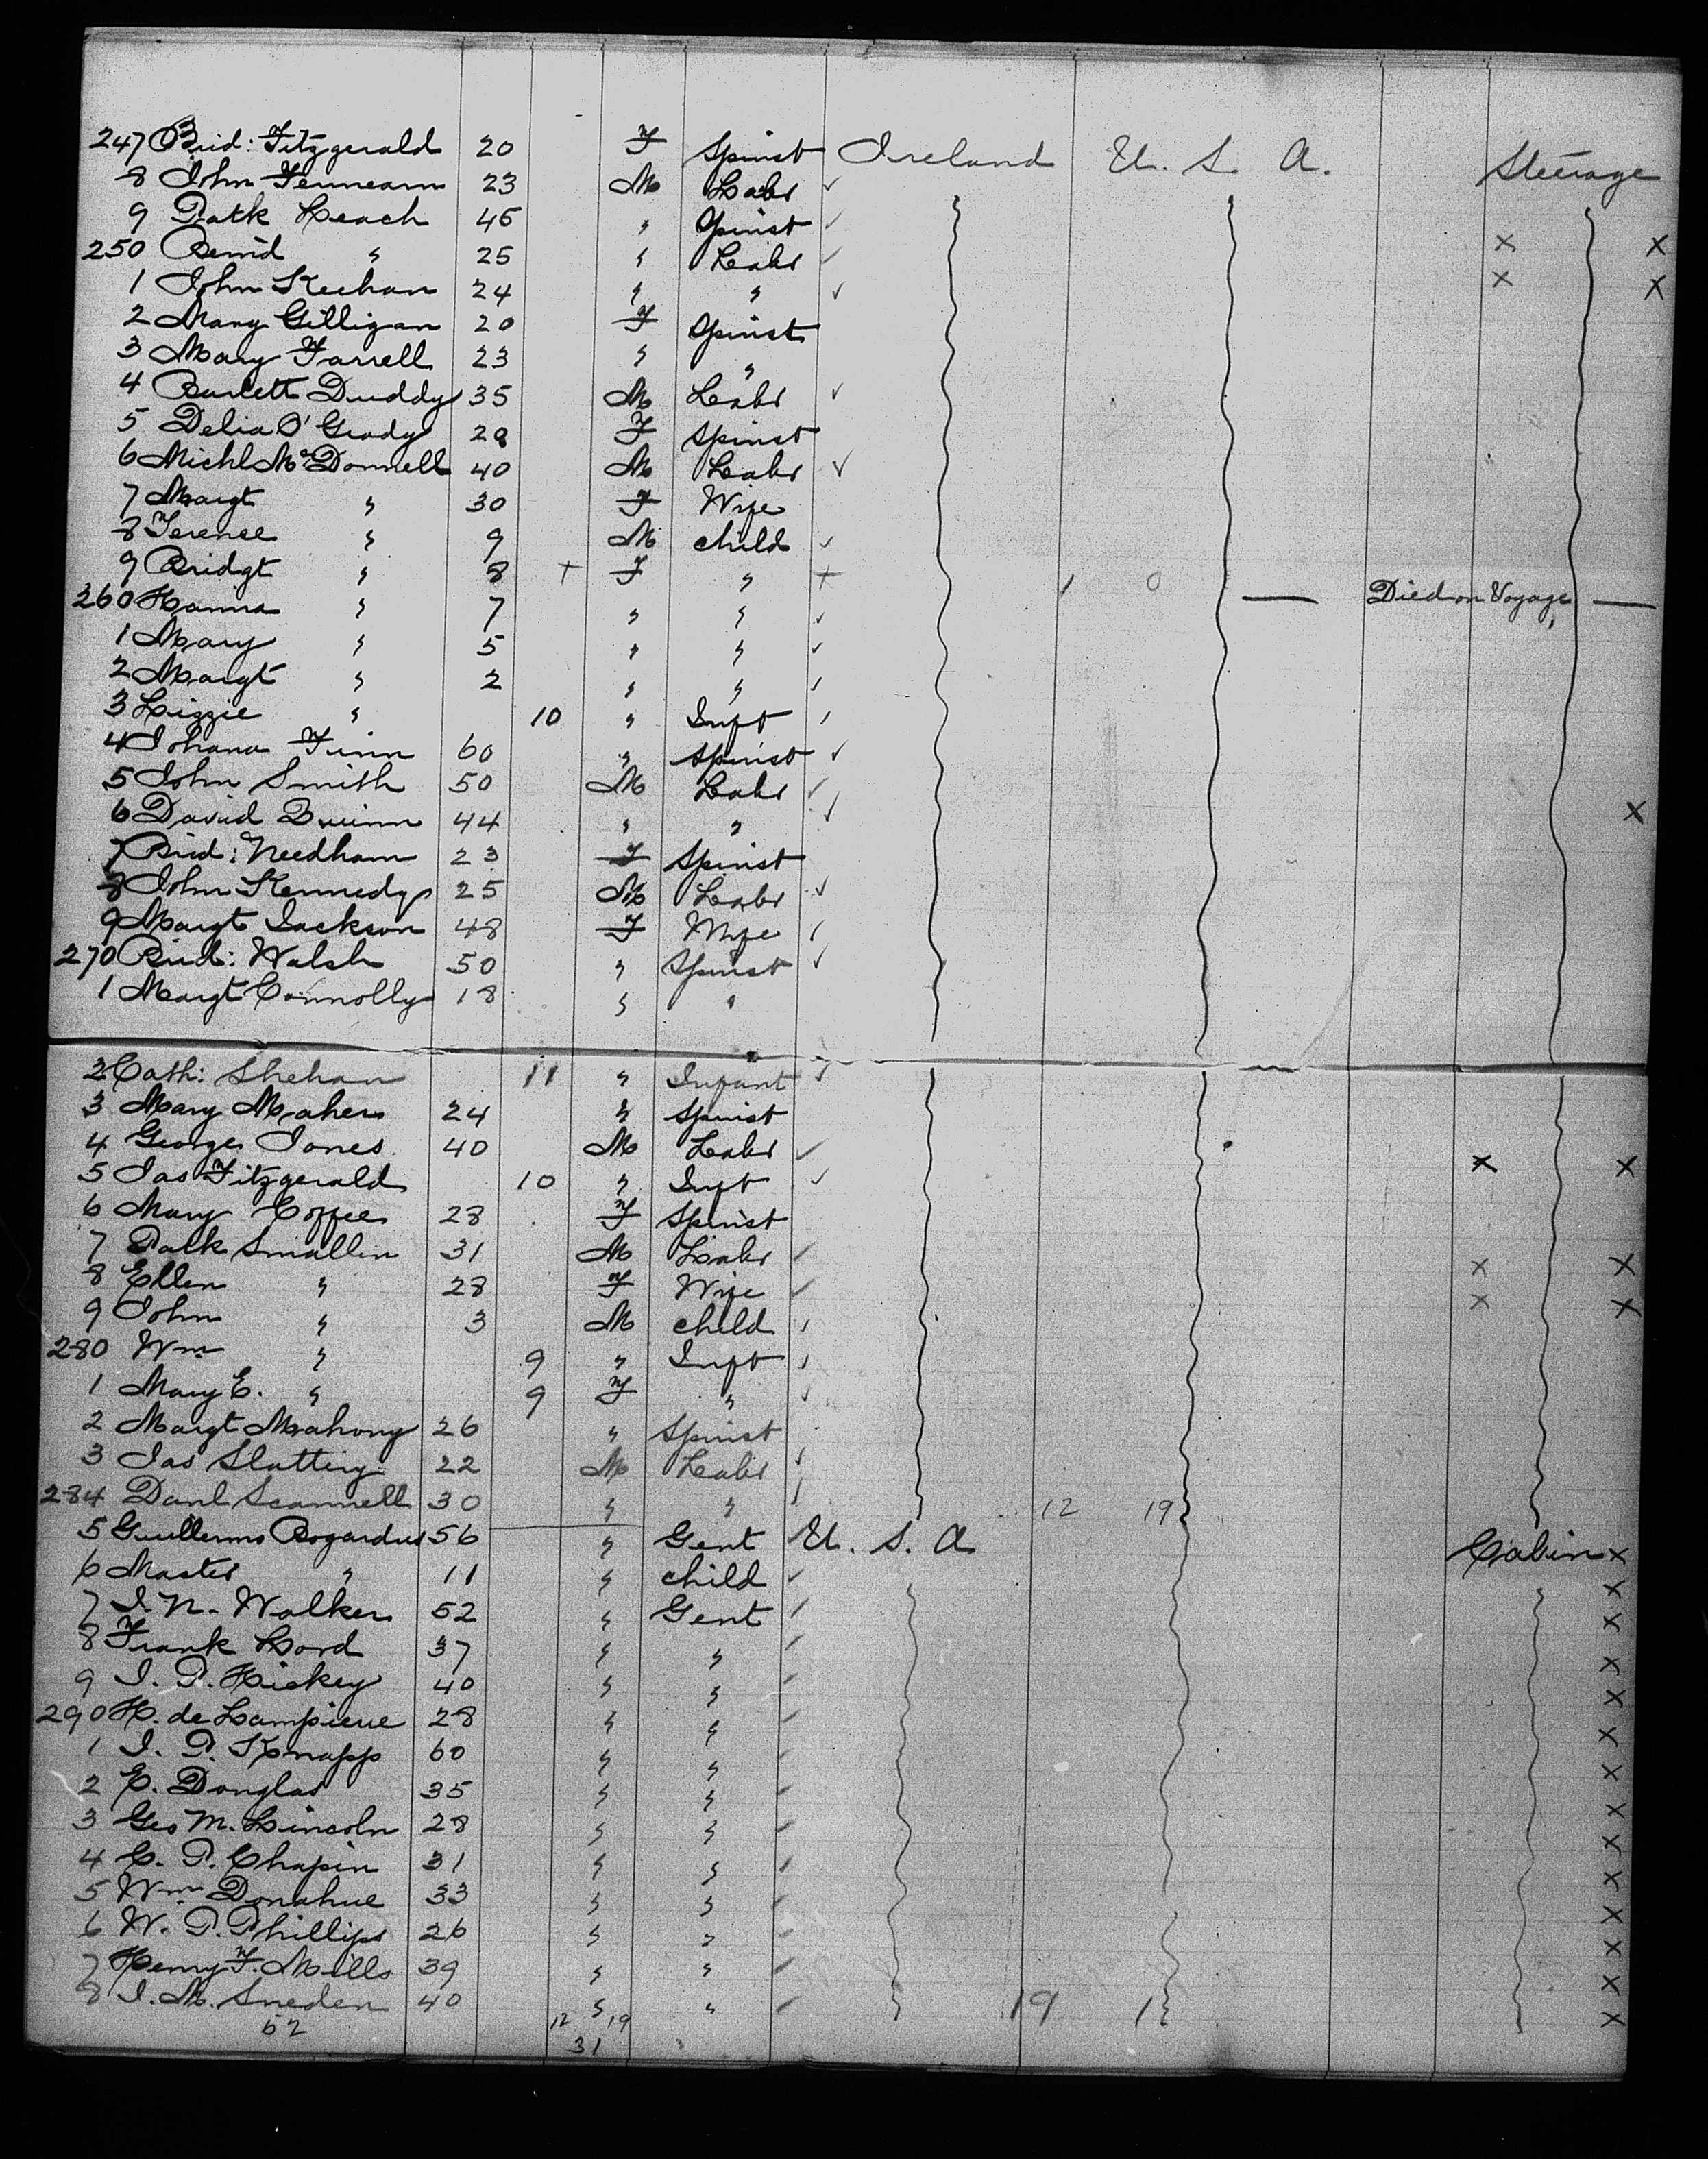 247 Brid: Fitzgerald 20 F Spinst Ireland U. S. A. Steerage
8 John Fennearn 23 M Labr ✓
9 Patk Leach 45 " Spinst ✓
250 Bernd " 25 " Labr ✓ × ×
1 John Keehan 24 " " ✓ × ×
2 Mary Gilligan 20 F Spinst
3 Mary Farrell 23 " "
4 Duddy 35 M Labr ✓
5 Delia O'Grady 28 F Spinst
6 Michl McDonnell 40 M Labr ✓
7 Margt " 30 F Wife
8 Terence " 9 M child ✓
9 Bridgt " 8 + F " + 1 0 — Died on Voyage —
260 Hanna " 7 " " ✓
1 Mary " 5 " " ✓
2 Margt " 2 " " ✓
3 Lizzie " 10 " Inft ✓
4 Johana Finn 60 " Spinst ✓
5 John Smith 50 M Labr ✓
6 David Quinn 44 " " ✓ ×
7 Brid: Needham 23 F Spinst
8 John Kennedy 25 M Labr ✓
9 Margt Jackson 48 F Wife ✓
270 Brid: Walsh 50 " Spinst ✓
1 Margt Connolly 18 " "
2 Cath: Shehan 11 " Infant ✓
3 Mary Maher 24 " Spinst
4 George Jones 40 M Labr ✓ × ×
5 Jas Fitzgerald 10 " Inft ✓
6 Mary Coffee 28 F Spinst
7 Patk Smallen 31 M Labr ✓ × ×
8 Ellen " 28 F Wife ✓ × ×
9 John " 3 M child ✓
280 Wm " 9 " Inft ✓
1 Mary E. " 9 F " ✓
2 Margt Mahony 26 " Spinst
3 Jas Slattery 22 M Labr ✓
284 Danl Scannell 30 " " ✓ 12 19
5 Guillermo Bogardus 56 " Gent U. S. A Cabin ×
6 Master " 11 " child ✓ ×
7 J. N. Walker 52 " Gent ✓ ×
8 Frank Lord 37 " " ✓ ×
9 J. P. Hickey 40 " " ✓ ×
290 H. de Lampierre 28 " " ✓ ×
1 J. P. Knapp 60 " " ✓ ×
2 E. Douglas 35 " " ✓ ×
3 Geo M. Lincoln 28 " " ✓ ×
4 C. P. Chapin 31 " " ✓ ×
5 Wm Donahue 33 " " ✓ ×
6 W. P. Phillips 26 " " ✓ ×
7 Henry F. Mills 39 " " ✓ ×
8 J. M. Sneden 40 " " ✓ 19 ×
52 12 19
31